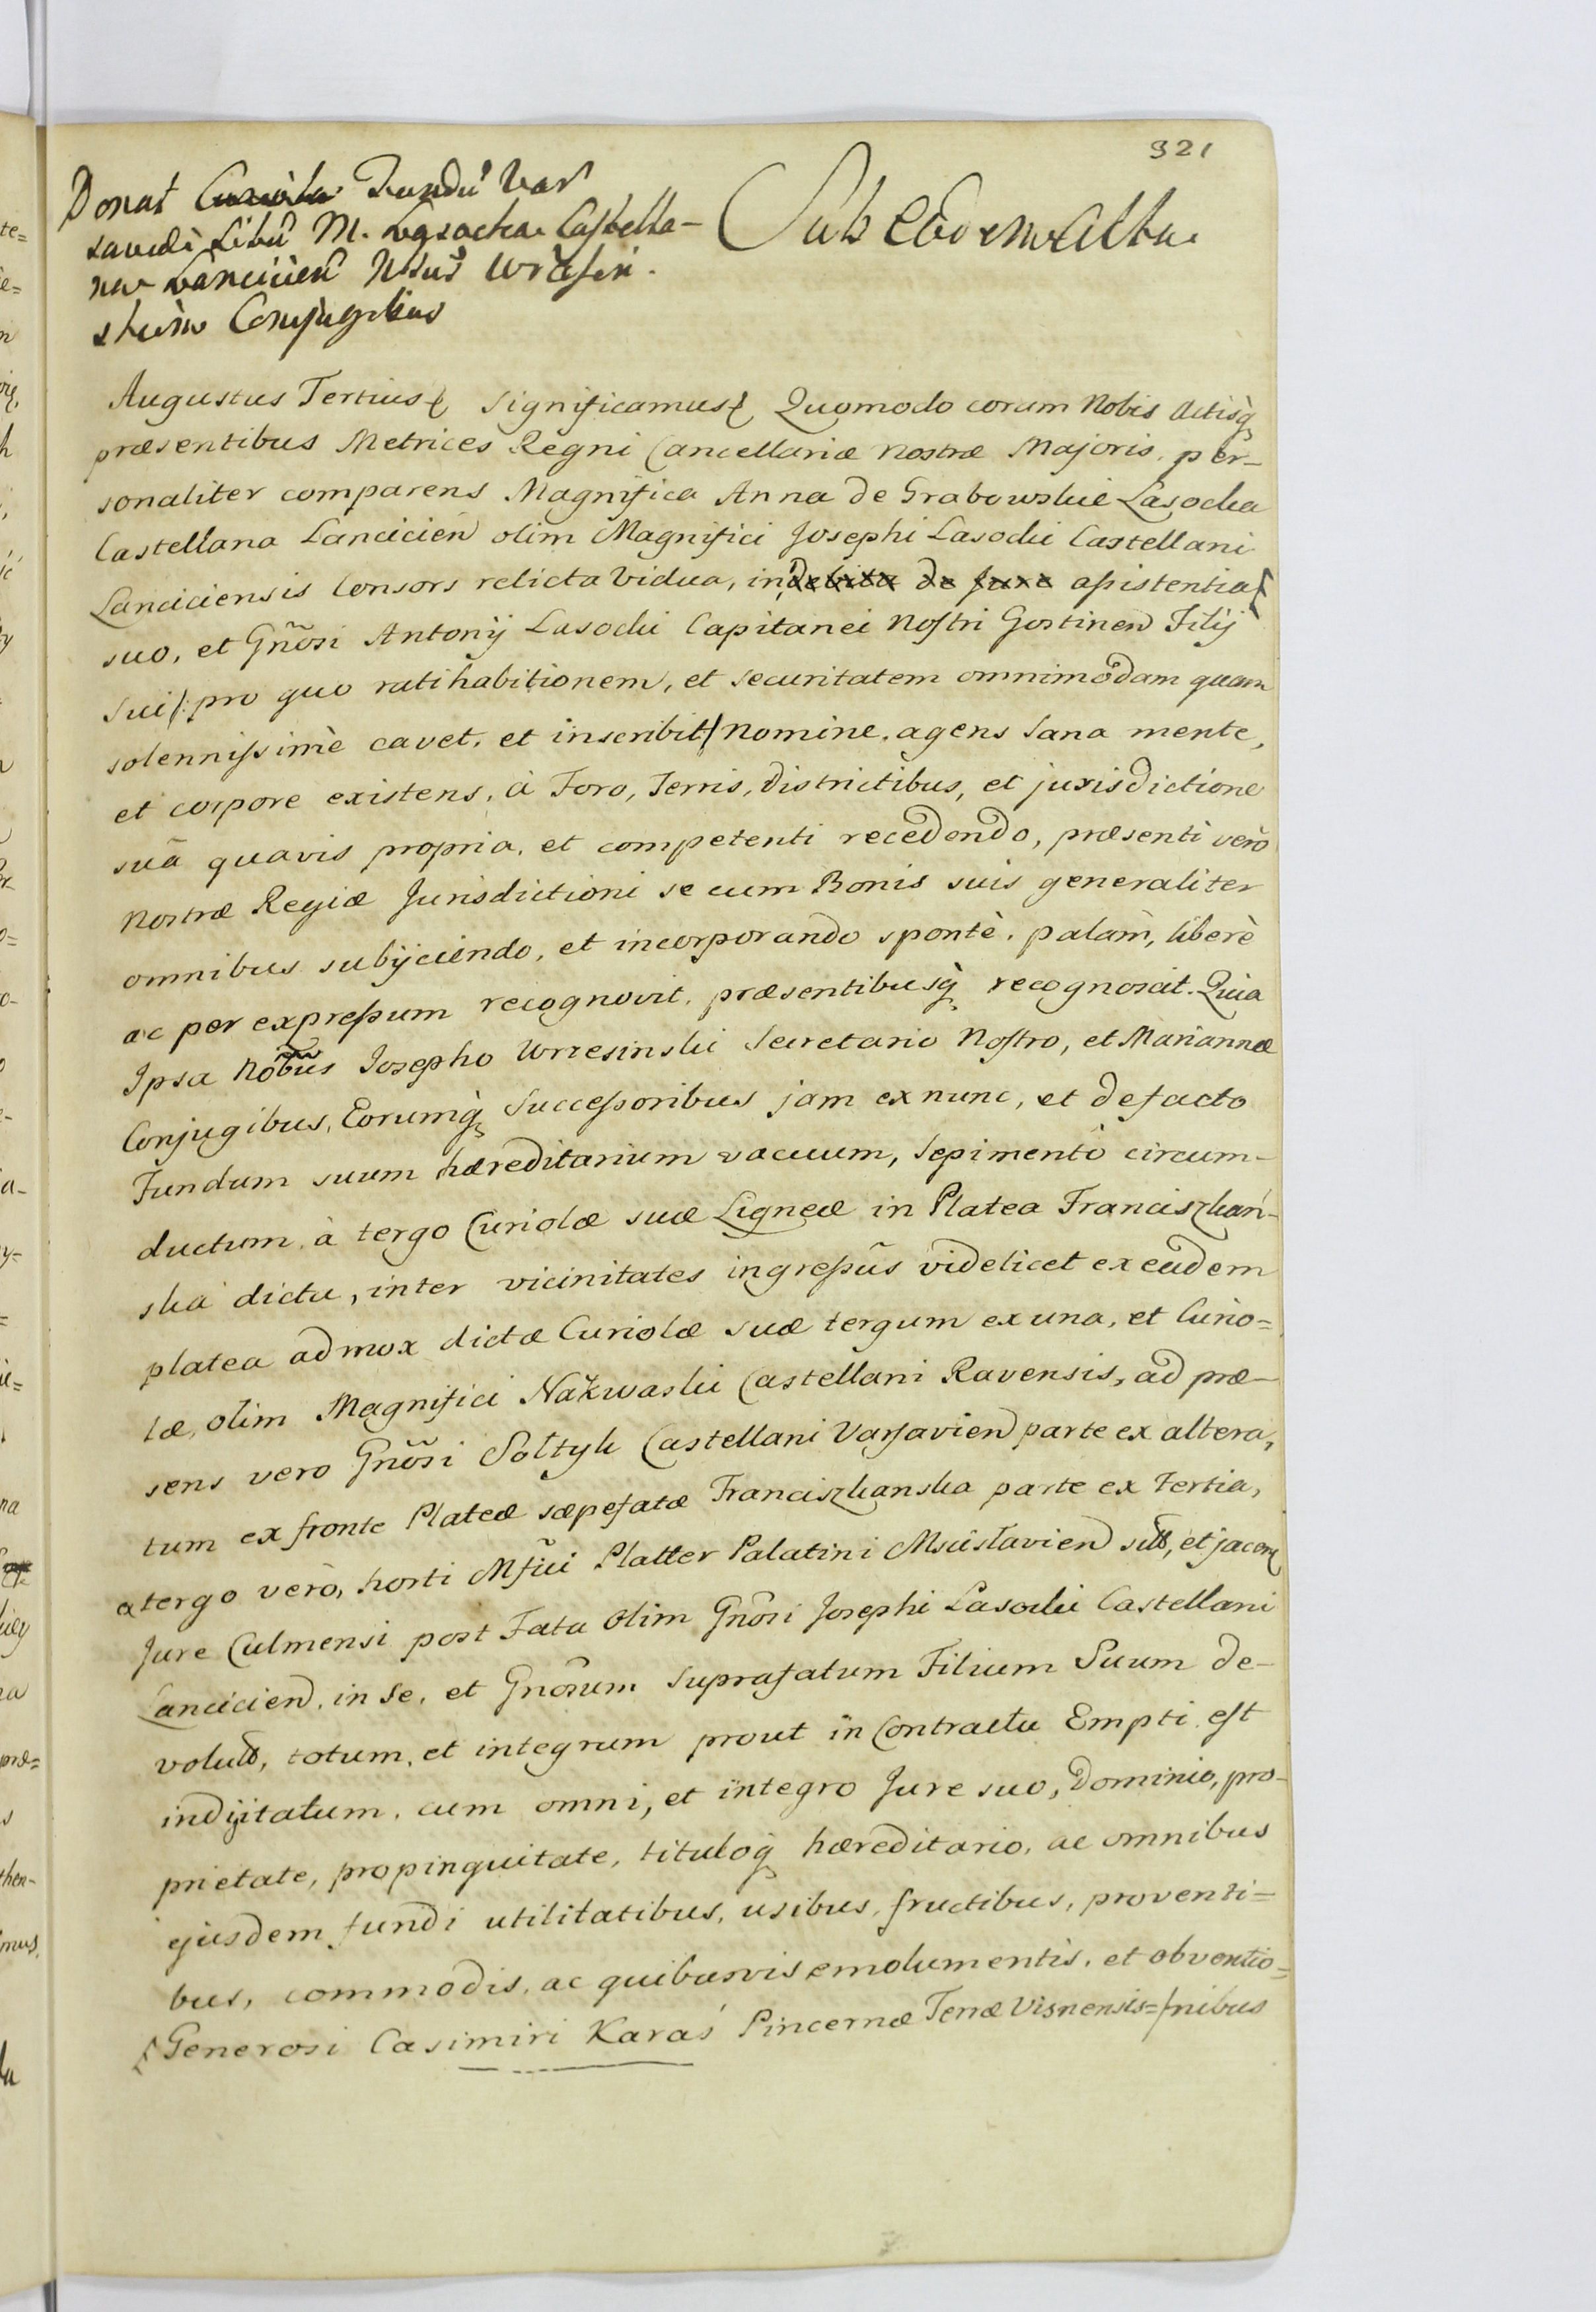 321
Donat Curiola Fundũ Var
saviæ Sibũ M. Lasocka Castella-
na Lancicień Nbus Wrzesin
skim Conjugibus
Sub eodem Actu.
Augustus Tertius Significamus Quomodo coram Nobis Actisq̃
præsentibus Metrices Regni Cancellariæ nostræ Majoris, per-
sonaliter comparens Magnifica Anna de Grabowskie Lasocka
Castellana Lancicień olim Magnifici Josephi Lasocki Castellani
Lanciciensis Consors relicta Vidua, in debita de Jure assistentia
suo, et Gñosi Antonij Lasocki Capitanei Nostri Gostinen Filij
Sui /: pro quo ratihabitionem, et securitatem omnimodam quam
solennissimè cavet, et inscribit / nomine, agens sana mente,
et corpore existens, à Foro, Terris, districtibus, et jurisdictione
suâ quavis propria, et competenti recedendo, præsenti verò
Nostræ Regiæ Jurisdictioni se cum Bonis suis generaliter
omnibus subijciendo, et incorporando spontè, palàm, liberè
ac per expressum recognovit, præsentibusq̃ recognoscit. Quia
Ipsa Nobũs Josepho Wrzesinski Secretario Nostro, et Mariannæ
Conjugibus, Eorumq̃ Successoribus jam ex nunc, et de facto
Fundum suum hæreditarium vacuum, Sepimentô circum-
ductum, à tergo Curiolæ suæ Ligneæ in Platea Franciszkań-
ska dicta, inter vicinitates ingressûs videlicet ex eadem
platea ad mox dictæ Curiolæ suæ tergum ex una, et Curio=
læ, olim Magnifici Nakwaski Castellani Ravensis, ad præ-
sens vero Gñosi Soltyk Castellani Varsavien parte ex altera,
tum ex fronte Plateæ sæpefatæ Franciszkanska parte ex Tertia,
a tergo verò, horti Mfici Platter Palatini Mscislavien sitũ, et jacen
Jure Culmensi post Fata olim Gñosi Josephi Lasocki Castellani
Lancicien, in se, et Gñosum suprafatum Filium Suum de-
volutũ, totum, et integrum prout in Contractu Empti est
indigitatum, cum omni, et integro Jure suo, Dominio, pro-
prietate, propinquitate, tituloq̃ hæreditario, ac omnibus
ejusdem fundi utilitatibus, usibus, fructibus, proventi=
bus, commodis, ac quibusvis emolumentis, et obventio=
Generosi Casimiri Karaś Pincernæ Terræ Visnensis =/nibus